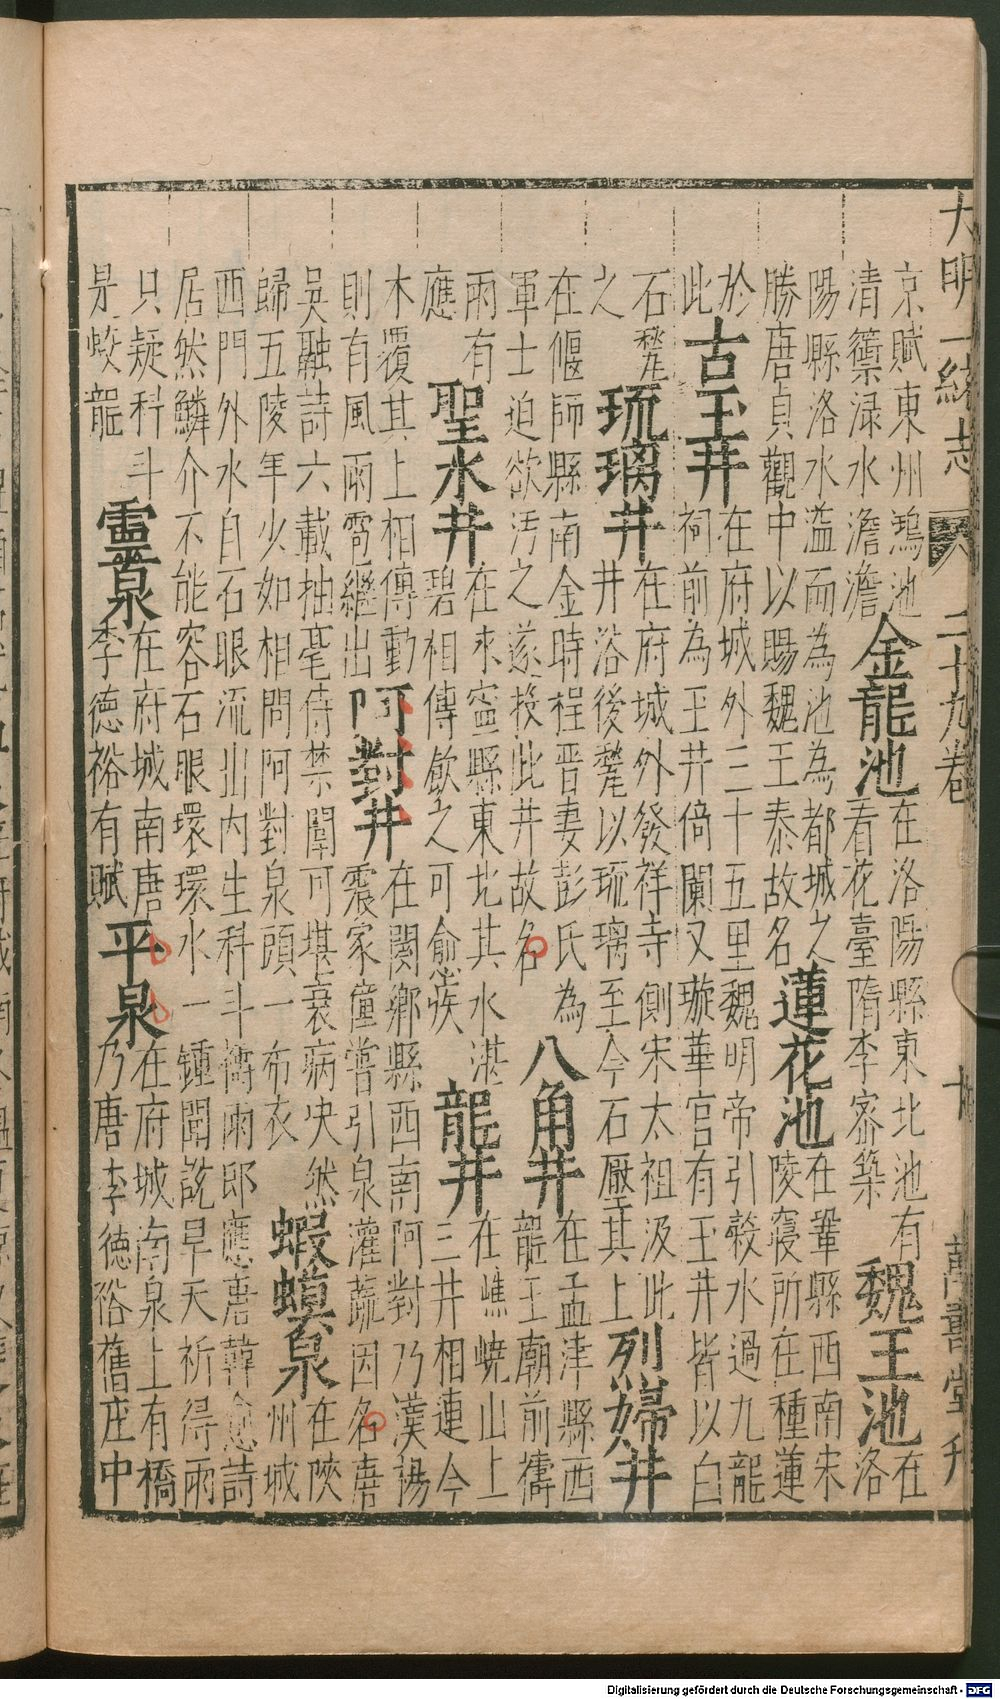 大明一統志 二十九卷 十 萬壽堂刋
京賦東州鴻池清籞渌水澹澹金龍池在洛陽縣東北池有看花臺隋李密築魏王池在洛
陽縣洛水溢而為池為都城之勝唐貞觀中以賜魏王泰故名蓮花池在鞏縣西南宋陵寢所在種蓮
於此古玉井在府城外三十五里魏明帝引穀水過九龍祠前為玉井倚闌又璇華宮有玉井皆以白
石甃之琉璃井在府城外發祥寺側宋太祖汲此井浴後甃以琉璃至今石壓其上烈婦井
在偃師縣南金時程晋妻彭氏為軍士迫欲污之遂投此井故名八角井在孟津縣西龍王廟前禱
雨有應聖水井在永寧縣東北其水湛碧相傳飲之可愈疾龍井在嶕嶢山上三井相連今
木覆其上相傳動則有風雨雹繼出阿對井在閿鄉縣西南阿對乃漢楊震家僮嘗引泉灌蔬因名唐
吳融詩六載抽毫侍禁闈可堪衰病決然歸五陵年少如相問阿對泉頭一布衣蝦蟆泉在陝州城
西門外水自石眼流出内生科斗禱雨即應唐韓愈詩居然鱗介不能容石眼環環水一鍾聞說旱天祈得雨
只疑科斗是蛟龍靈泉在府城南唐李德裕有賦平泉在府城南泉上有橋乃唐李德裕舊庄中
Digitalisierung gefördert durch die Deutsche Forschungsgemeinschaft - DFG